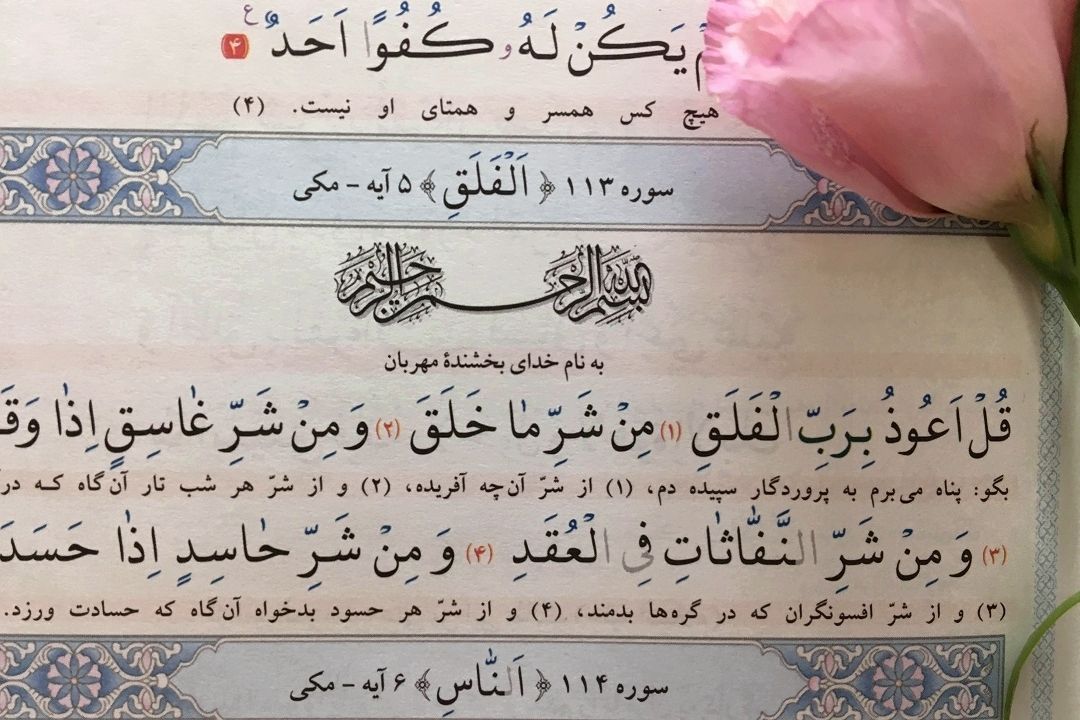 یَکُنْ لَهُو کُفُوًا اَحَدٌ ع ۴
هیچ کس همسر و همتای او نیست. (۴)
سوره ۱۱۳ ﴿اَلْفَلَقِ﴾ ۵ آیه - مکی
بسم الله الرحمن الرحیم
به نام خدای بخشندهٔ مهربان
قُلْ اَعُوذُ بِرَبِّ الْفَلَقِ (۱) مِنْ شَرِّ مٰا خَلَقَ (۲) وَ مِنْ شَرِّ غٰاسِقٍ اِذٰا وَقَ
بگو: پناه می‌برم به پروردگار سپیده دم، (۱) از شرّ آن‌چه آفریده، (۲) و از شرّ هر شب تار آن‌گاه کـه در
(۳) وَ مِنْ شَرِّ النَّفّٰاثٰاتِ فِی الْعُقَدِ (۴) وَ مِنْ شَرِّ حٰاسِدٍ اِذٰا حَسَدَ
(۳) و از شرّ افسونگران که در گره‌ها بدمند، (۴) و از شرّ هر حسود بدخواه آن‌گاه که حسادت ورزد.
سوره ۱۱۴ ﴿اَلنّٰاسِ﴾ ۶ آیه - مکی